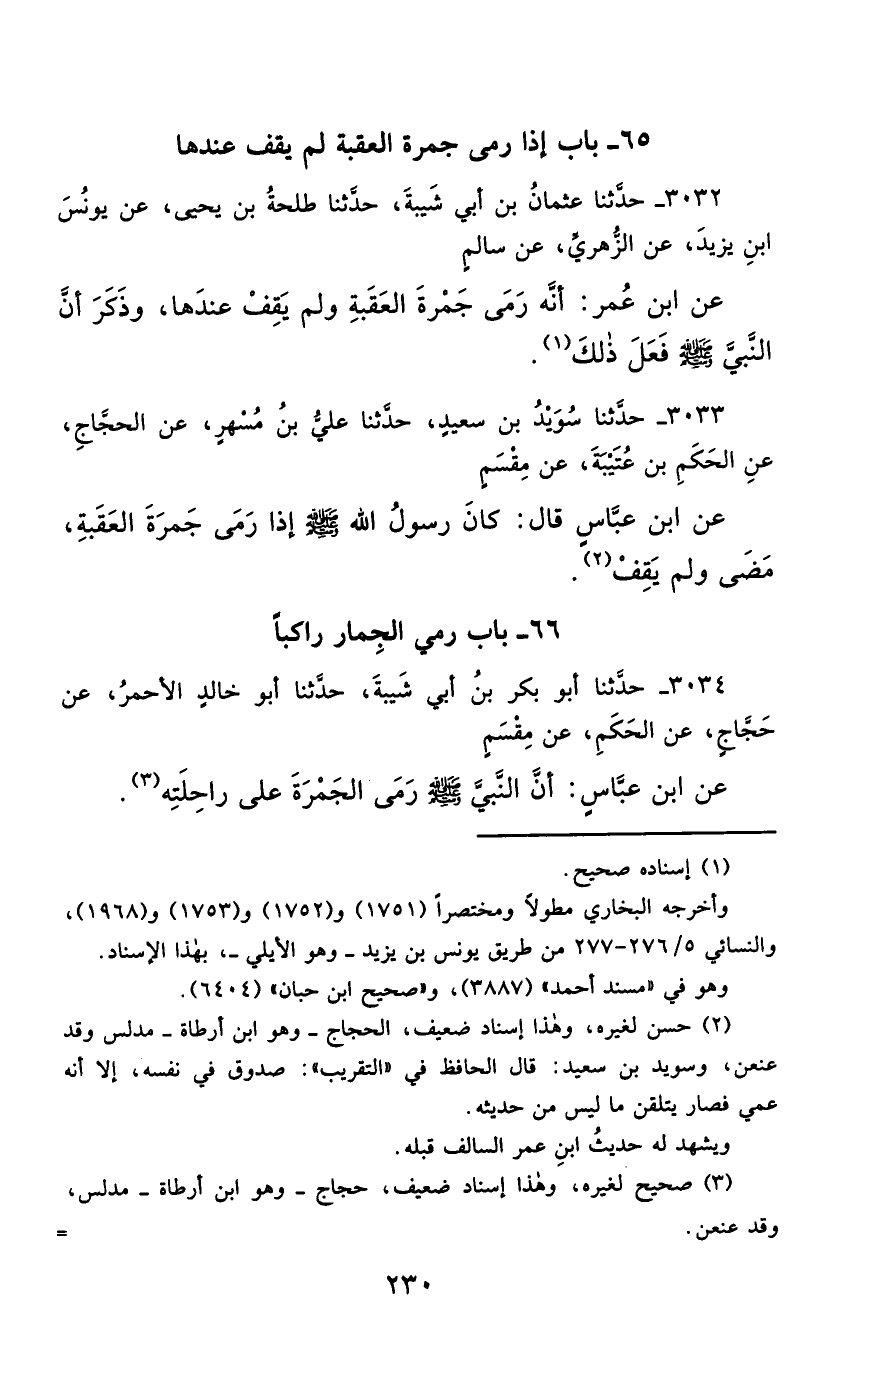 ٦٥ـ باب إذا رمى جمرة العقبة لم يقف عندها
٣٠٣٢ـ حدَّثنا عثمانُ بن أبي شَيبةَ، حدَّثنا طلحةُ بن يحيى، عن يونُسَ
ابنِ يزيدَ، عن الزُّهريِّ، عن سالمٍ
عن ابن عُمر: أنَّه رَمَى جَمْرةَ العَقَبةِ ولم يَقِفْ عندَها، وذَكَرَ أنَّ
النَّبيَّ ﷺ فَعَلَ ذٰلكَ(١).
٣٠٣٣ـ حدَّثنا سُوَيْدُ بن سعيدٍ، حدَّثنا عليُّ بنُ مُسْهرٍ، عن الحجَّاجِ،
عنِ الحَكَمِ بن عُتَيْبَةَ، عن مِقْسَمٍ
عن ابن عبَّاسٍ قال: كانَ رسولُ الله ﷺ إذا رَمَى جَمرَةَ العَقَبةِ،
مَضَى ولم يَقِفْ(٢).
٦٦ـ باب رمي الجِمار راكباً
٣٠٣٤ـ حدَّثنا أبو بكر بنُ أبي شَيبةَ، حدَّثنا أبو خالدٍ الأحمرُ، عن
حَجَّاجٍ، عن الحَكَمِ، عن مِقْسَمٍ
عن ابن عبَّاسٍ: أنَّ النَّبيَّ ﷺ رَمَى الجَمْرَةَ على راحِلَتِه(٣).
(١) إسناده صحيح.
وأخرجه البخاري مطولاً ومختصراً (١٧٥١) و(١٧٥٢) و(١٧٥٣) و(١٩٦٨)،
والنسائي ٥/ ٢٧٦-٢٧٧ من طريق يونس بن يزيد ـ وهو الأيلي ـ، بهٰذا الإسناد.
وهو في «مسند أحمد» (٣٨٨٧)، و«صحيح ابن حبان» (٦٤٠٤).
(٢) حسن لغيره، وهٰذا إسناد ضعيف، الحجاج ـ وهو ابن أرطاة ـ مدلس وقد
عنعن، وسويد بن سعيد: قال الحافظ في «التقريب»: صدوق في نفسه، إلا أنه
عمي فصار يتلقن ما ليس من حديثه.
ويشهد له حديثُ ابنِ عمر السالف قبله.
(٣) صحيح لغيره، وهٰذا إسناد ضعيف، حجاج ـ وهو ابن أرطاة ـ مدلس،
وقد عنعن. =
٢٣٠